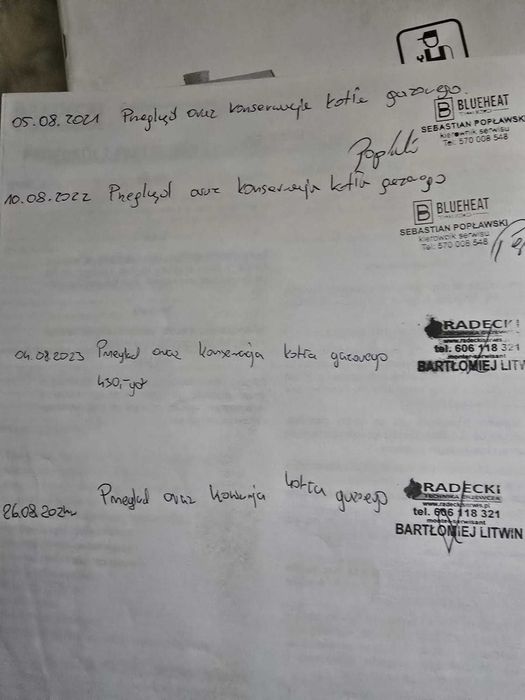 05.08.2021 Przegląd oraz konserwacja kotła gazowego.
B BLUEHEAT
SEBASTIAN POPŁAWSKI
kierownik serwisu
Tel: 570 008 548
10.08.2022 Przegląd oraz konserwacja kotła gazowego
B BLUEHEAT
SEBASTIAN POPŁAWSKI
kierownik serwisu
Tel: 570 008 548
RADECKI
04.08.2023 Przegląd oraz konserwacja kotła gazowego
tel. 606 118 321
monter-serwisant
BARTŁOMIEJ LITW
430,-
RADECKI
TECHNIKA GRZEWCZA
26.08.202 Przegląd oraz kotła
www.radeckiserwis.pl
tel. 606 118 321
monter-serwisant
BARTŁOMIEJ LITWIN